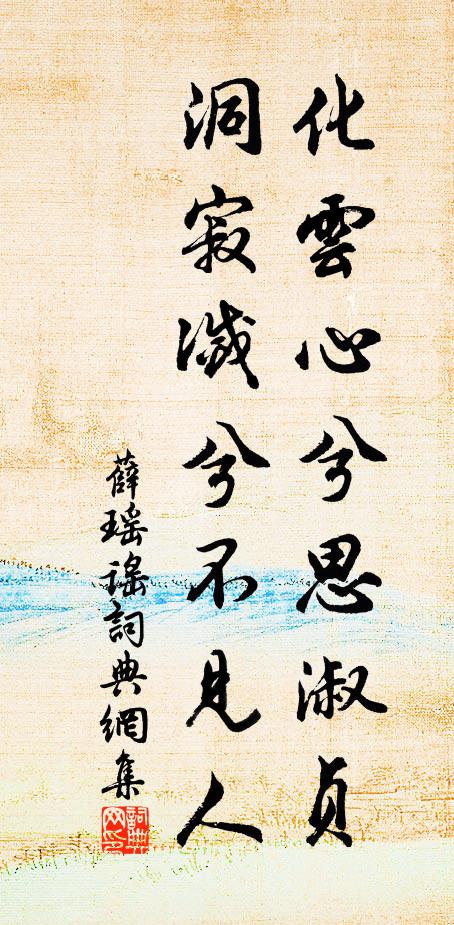 化雲心兮思淑貞
洞寂滅兮不見人
薛瑶謠詞典網集
詞典